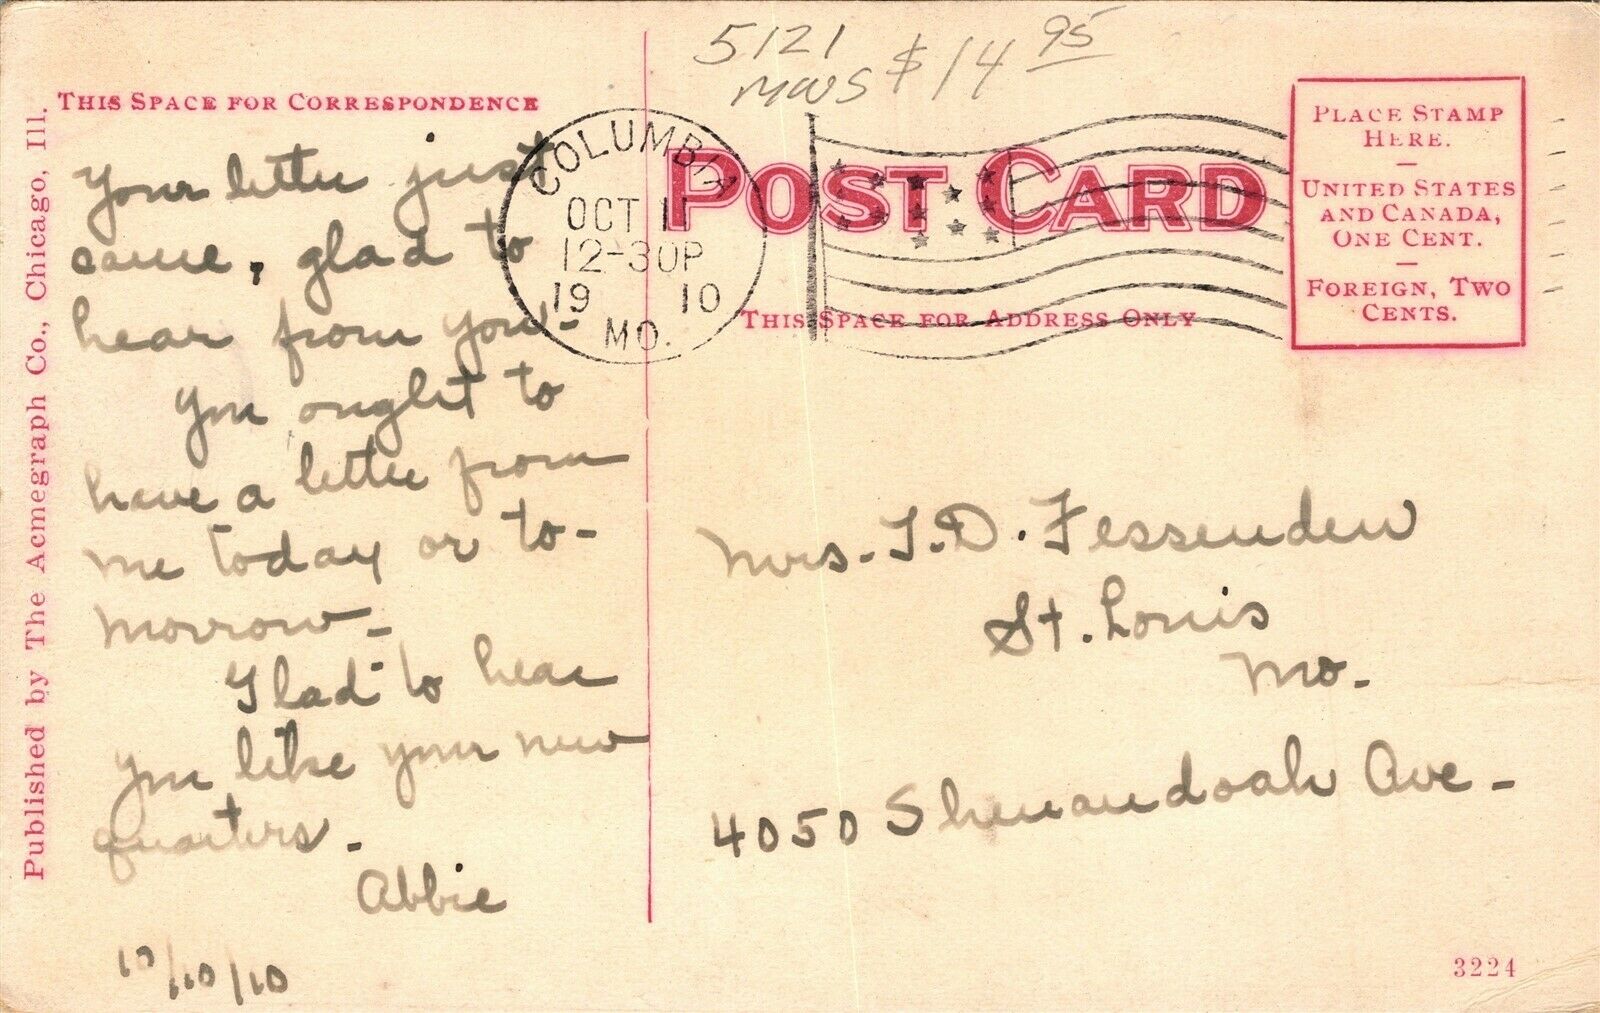 5121
MWS $14 95
THIS SPACE FOR CORRESPONDENCE
Published by The Acmegraph Co., Chicago, Ill.
Your letter just
came, glad to
hear from you-
You ought to
have a letter from
me today or to-
morrow-
Glad to hear
you like your new
quarters-
Abbie
10/10/10
COLUMBIA
OCT 11
12-30P
19 10
MO.
POST CARD
THIS SPACE FOR ADDRESS ONLY
PLACE STAMP
HERE.
UNITED STATES
AND CANADA,
ONE CENT.
FOREIGN, TWO
CENTS.
Mrs. T. D. Fessenden
St. Louis
Mo-
4050 Shenandoah Ave-
3224